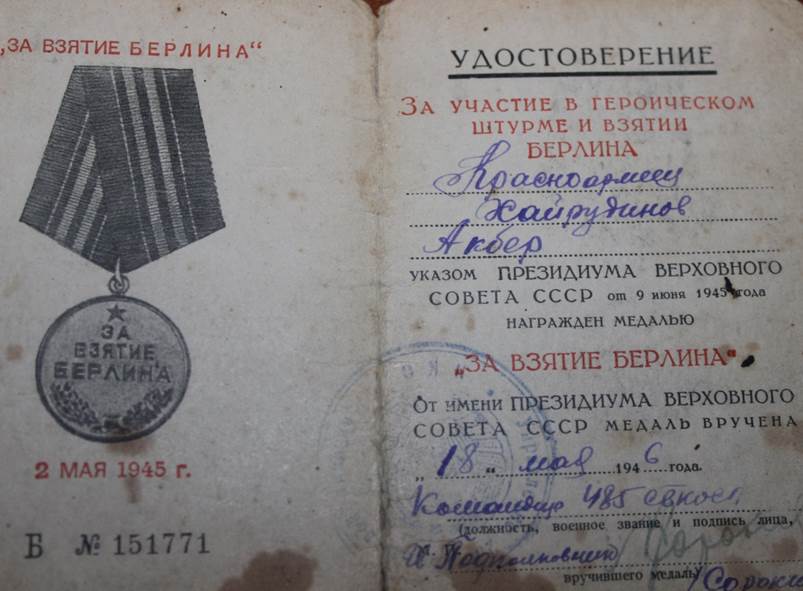 „ЗА ВЗЯТИЕ БЕРЛИНА“
ЗА
ВЗЯТИЕ
БЕРЛИНА
2 МАЯ 1945 г.
Б № 151771
УДОСТОВЕРЕНИЕ
ЗА УЧАСТИЕ В ГЕРОИЧЕСКОМ
ШТУРМЕ И ВЗЯТИИ
БЕРЛИНА
Красноармеец
Хайрудинов
Акбер
УКАЗОМ ПРЕЗИДИУМА ВЕРХОВНОГО
СОВЕТА СССР от 9 июня 1945 года
НАГРАЖДЕН МЕДАЛЬЮ
„ЗА ВЗЯТИЕ БЕРЛИНА“
ОТ ИМЕНИ ПРЕЗИДИУМА ВЕРХОВНОГО
СОВЕТА СССР МЕДАЛЬ ВРУЧЕНА
„18“ мая 1946 года.
Командир 485
(должность, военное звание и подпись лица,
Подполковник
вручившего медаль)